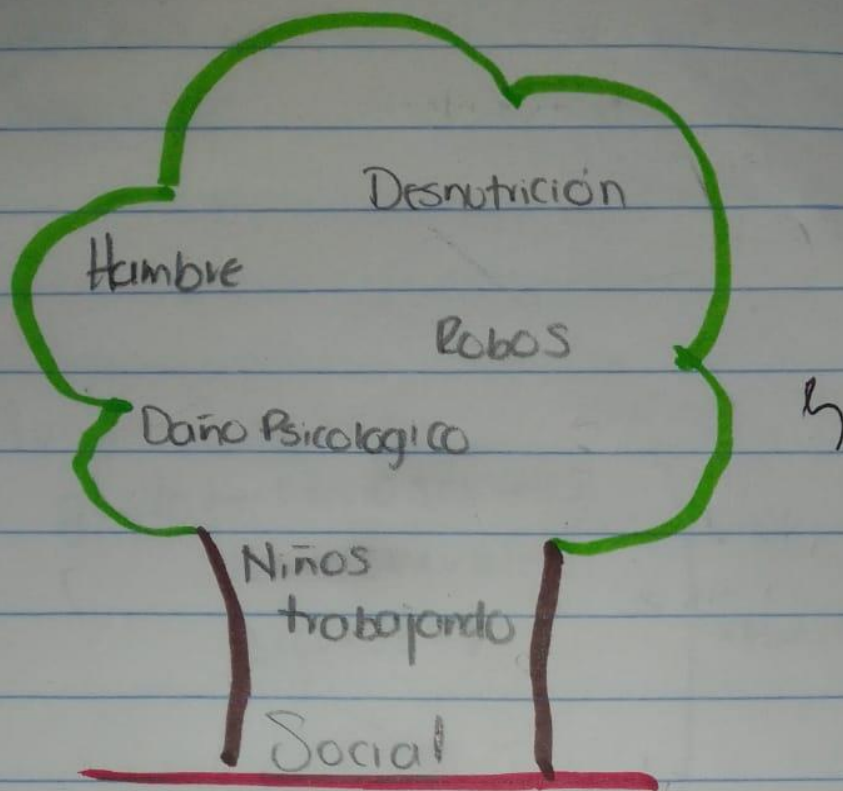 Desnutrición
Hambre
Robos
Daño Psicologico
Niños
trabajando
Social